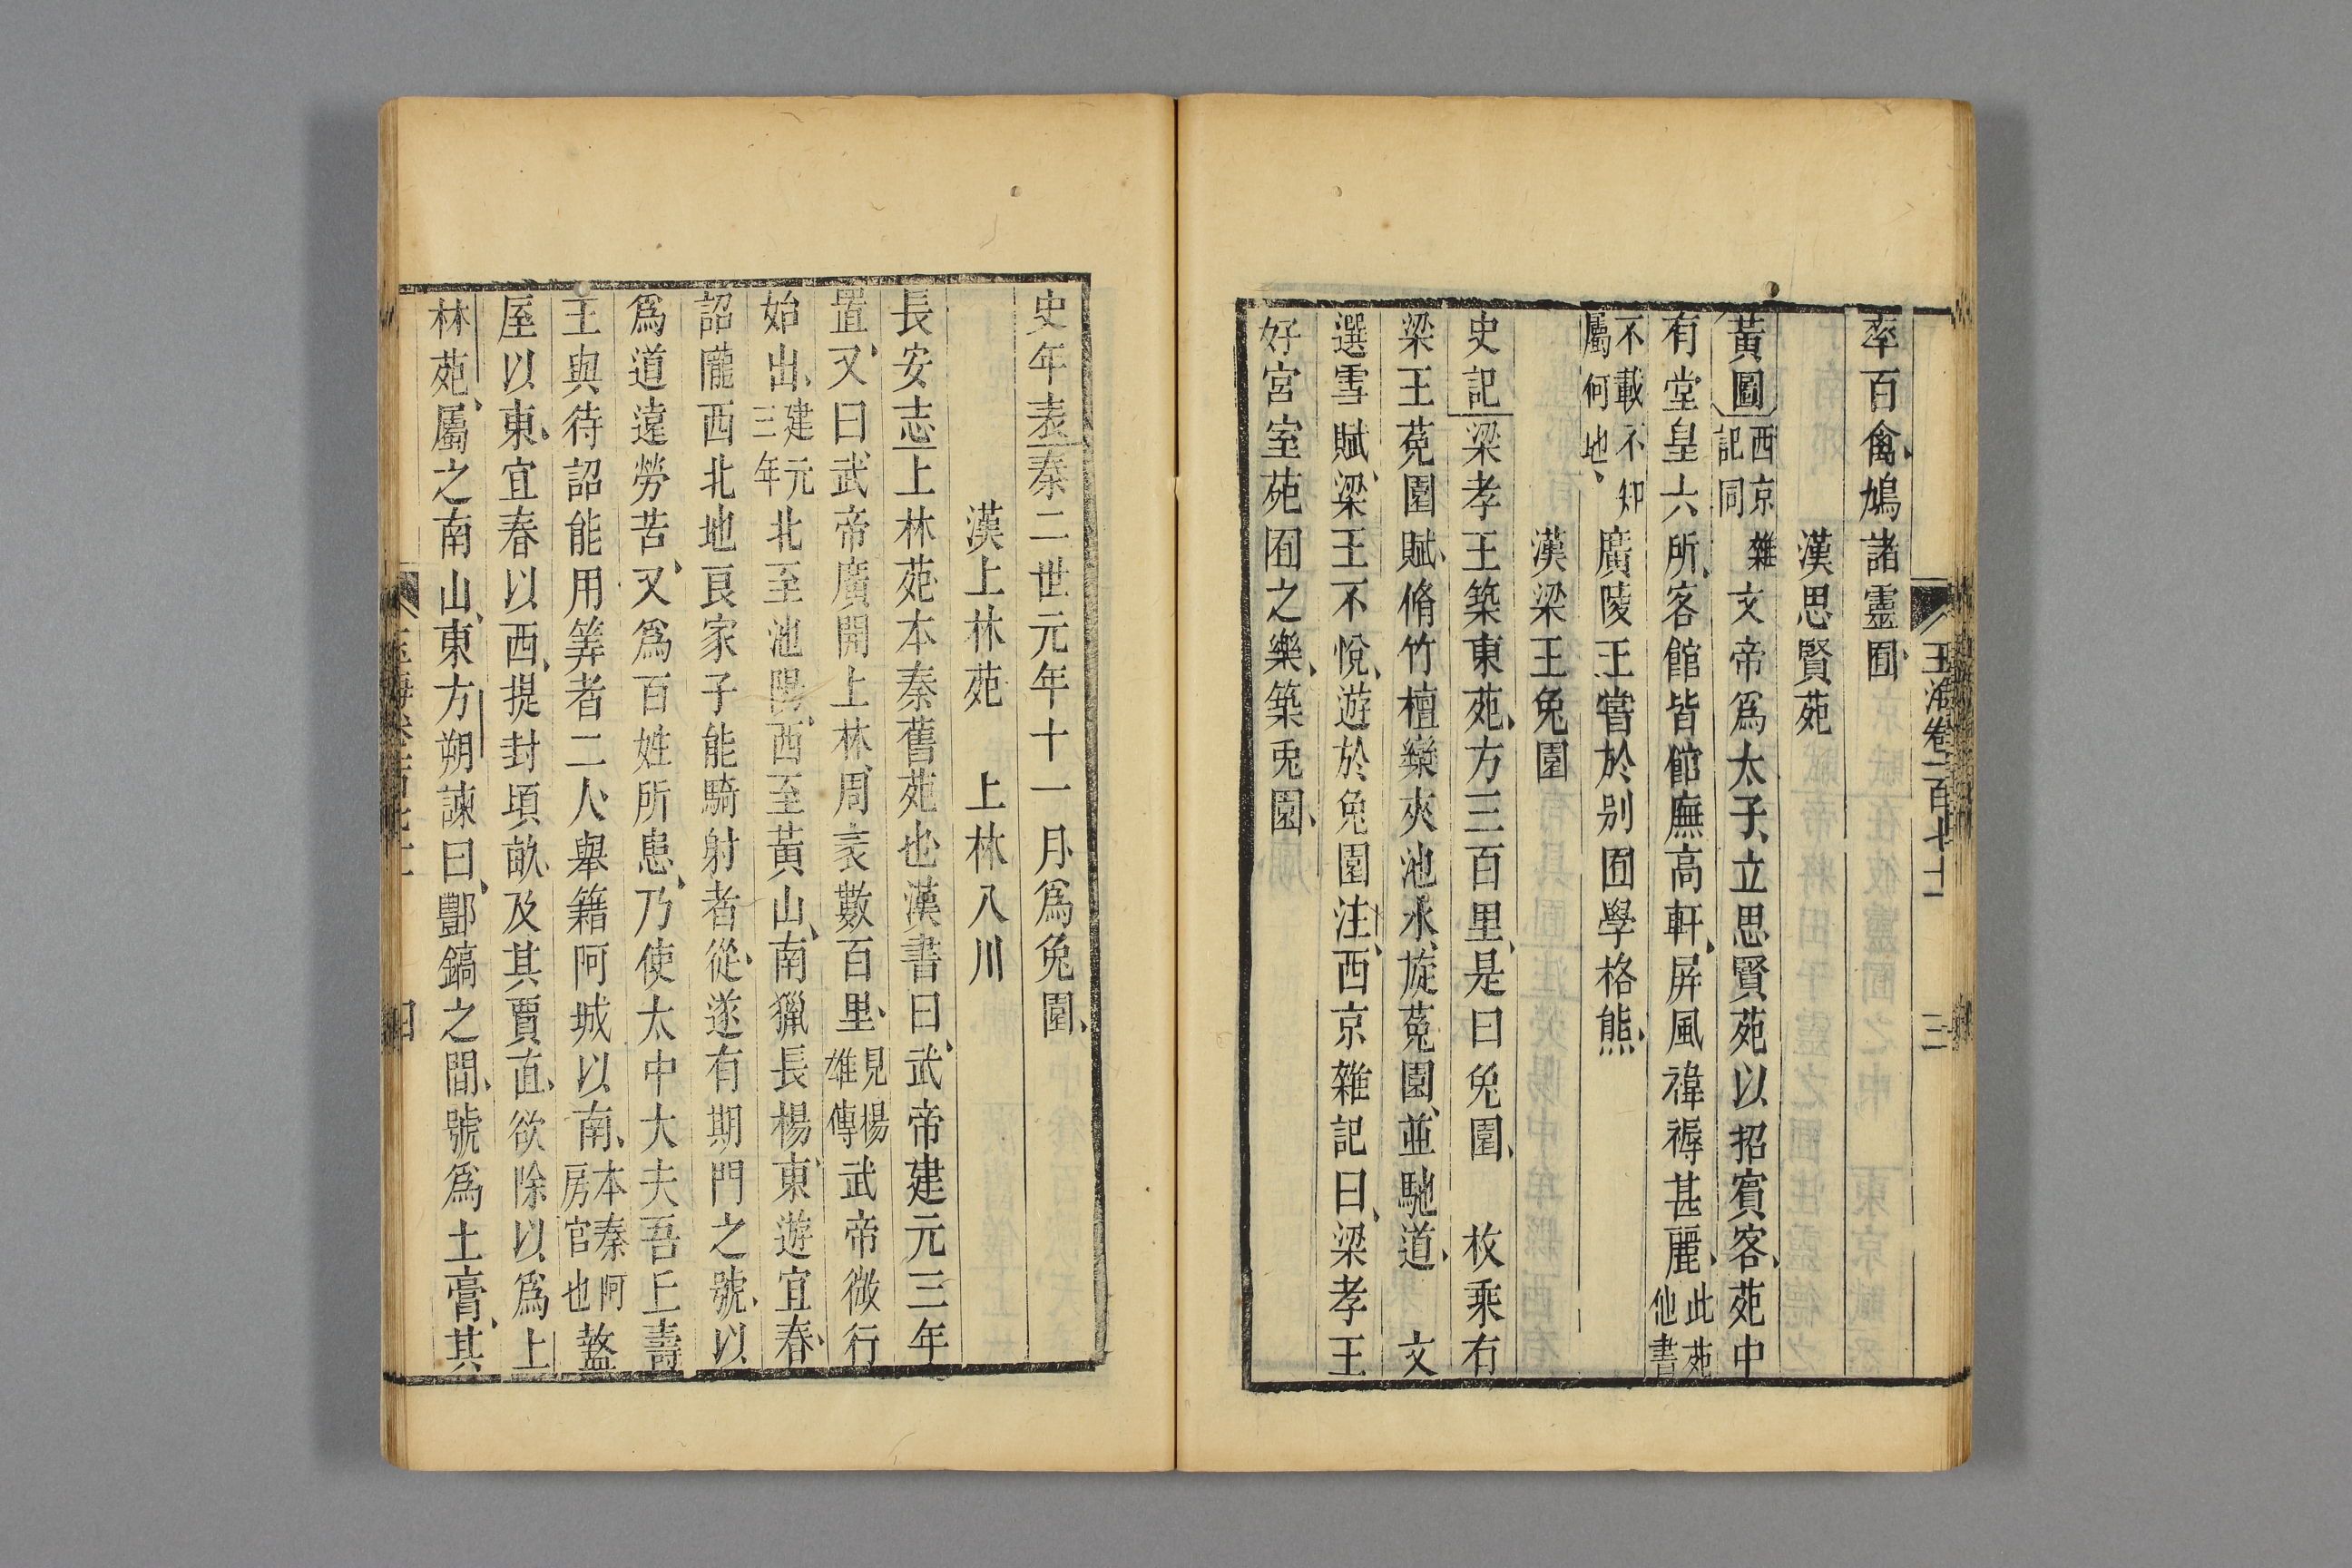 玉海卷一百七十一 三
率百禽鳩諸靈囿
漢思賢苑
黃圖西京雜記同文帝爲太子立思賢苑以招賓客苑中
有堂皇六所客館皆館廡高軒屏風褘褥甚麗此苑他書
不載不知屬何地廣陵王嘗於別囿學格熊
漢梁王兔園
史記梁孝王築東苑方三百里是曰兔園 枚乘有
梁王菟園賦脩竹檀欒夾池水旋菟園並馳道 文
選雪賦梁王不悅遊於兔園注西京雜記曰梁孝王
好宮室苑囿之樂築兎園
史年表秦二世元年十一月爲兔園
漢上林苑 上林八川
長安志上林苑本秦舊苑也漢書曰武帝建元三年
置又曰武帝廣開上林周袤數百里見楊雄傳武帝微行
始出建元三年北至池陽西至黃山南獵長楊東遊宜春
詔隴西北地良家子能騎射者從遂有期門之號以
爲道遠勞苦又爲百姓所患乃使太中大夫吾丘壽
王與待詔能用筭者二人舉籍阿城以南本秦阿房官也盩
厔以東宜春以西提封頃畝及其賈直欲除以爲上
林苑屬之南山東方朔諫曰酆鎬之間號爲土膏其
四